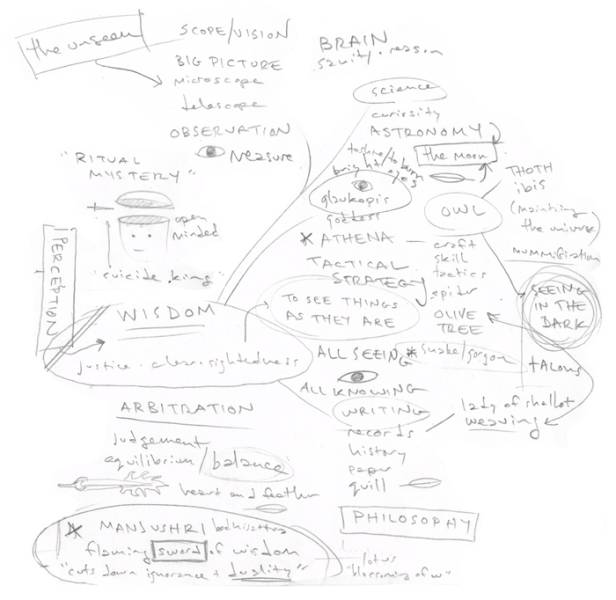 the unseen
SCOPE/VISION
BIG PICTURE
microscope
telescope
OBSERVATION
measure
BRAIN
sanity · reason
science
curiosity
ASTRONOMY
the moon
to shine/to burn
bright eyes
glaukopis
goddess
* ATHENA
craft
skill
tactics
spider
OLIVE
TREE
* snake/gorgon
TACTICAL
STRATEGY
TO SEE THINGS
AS THEY ARE
OWL
THOTH
ibis
the universe
mummification
SEEING
IN THE
DARK
talons
lady of shallot
weaving
"RITUAL
MYSTERY"
open
minded
"suicide king"
PERCEPTION
WISDOM
justice · clear · sightedness
ALL SEEING
ALL KNOWING
WRITING
records
history
paper
quill
PHILOSOPHY
lotus
"blossoming of w"
ARBITRATION
judgement
equilibrium/balance
heart and feather
* MANJUSHRI bodhisattva
flaming sword of wisdom
"cuts down ignorance + duality"